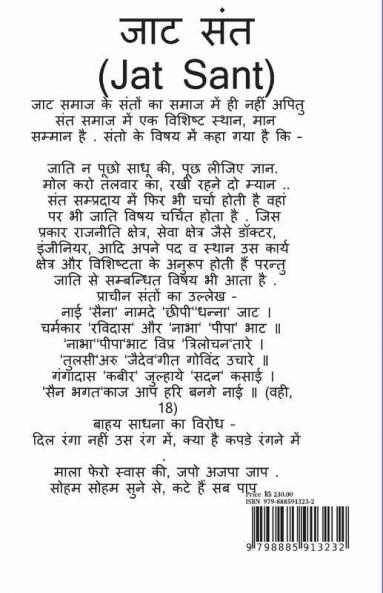 जाट संत
(Jat Sant)
जाट समाज के संतों का समाज में ही नहीं अपितु
संत समाज में एक विशिष्ट स्थान, मान
सम्मान है . संतो के विषय में कहा गया है कि –
जाति न पूछो साधू की, पूछ लीजिए ज्ञान.
मोल करो तलवार का, रखी रहने दो म्यान ..
संत सम्प्रदाय में फिर भी चर्चा होती है वहां
पर भी जाति विषय चर्चित होता है . जिस
प्रकार राजनीति क्षेत्र, सेवा क्षेत्र जैसे डॉक्टर,
इंजीनियर, आदि अपने पद व स्थान उस कार्य
क्षेत्र और विशिष्टता के अनुरूप होती हैं परन्तु
जाति से सम्बन्धित विषय भी आता है .
प्राचीन संतों का उल्लेख –
नाई 'सैना' नामदे 'छीपी''धन्ना' जाट ।
चर्मकार 'रविदास' और 'नाभा' 'पीपा' भाट ॥
'नाभा''पीपा'भाट विप्र 'त्रिलोचन'तारे ।
'तुलसी'अरु 'जैदेव'गीत गोविंद उचारे ॥
गंगादास 'कबीर' जुल्हाये 'सदन' कसाई ।
'सैन भगत'काज आप हरि बनगे नाई ॥ (वही,
18)
बाहय साधना का विरोध –
दिल रंगा नहीं उस रंग में, क्या है कपडे रंगने में
.
माला फेरो स्वास की, जपो अजपा जाप .
सोहम सोहम सुने से, कटे हैं सब पाप
Price RS 230.00
ISBN 979-888591323-2
9 798885 913232